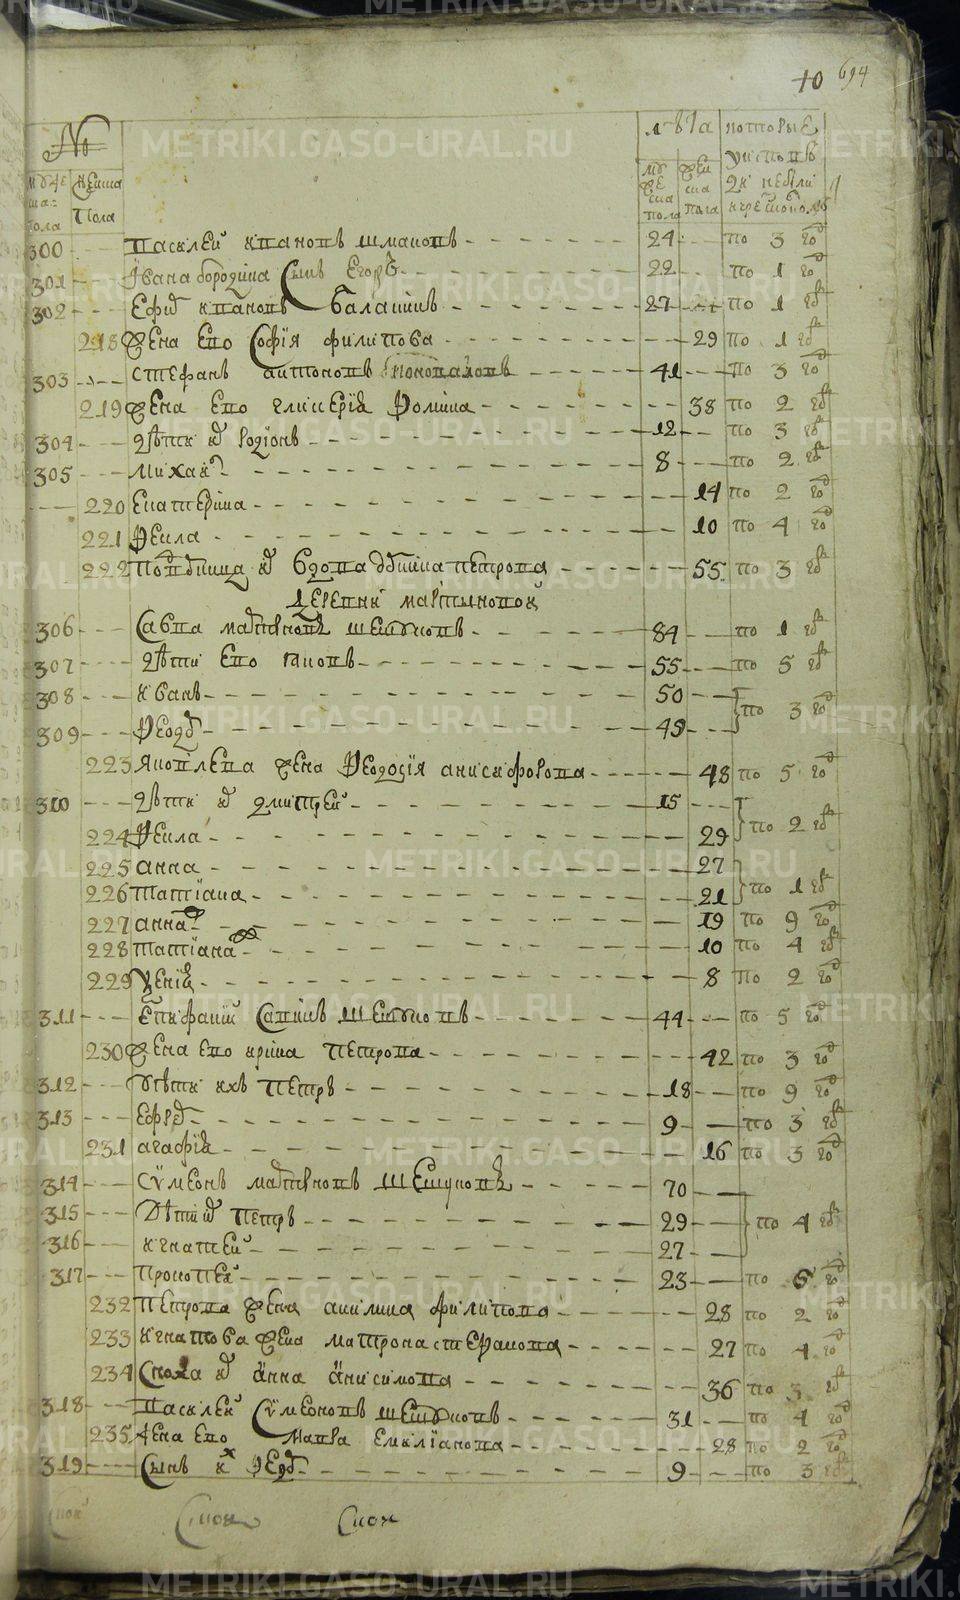 METRIKI.GASO-URAL.RU
10 694
№ лѣта которые
у исповѣ
мужеска пола женска пола мужеска пола женска пола
300 Василей Ивановъ Шмаковъ 24 по 3 го
301 Ивана Бородина сынъ Егоръ 22 по 1 го
302 Ефи Ивановъ Балашивъ 27 по 1 го
218 Жена Ево Софія Филипова 29 по 1 го
303 Стефанъ Антоновъ Коновалонъ 41 по 3 го
219 Жена Ево Гликерія Фомина 38 по 2 го
304 Дѣти и Родіонъ 12 по 3 го
305 Михаи 8 по 2 го
220 Екатерина 14 по 2 го
221 Фекла 10 по 4 го
222 Вдова Петрова 55 по 3 го
Деревни Мартыновой
306 Савва Матвѣевъ Шешуковъ 84 по 1 го
307 Дѣти Ево Яковъ 55 по 5 го
308 Иванъ 50
309 Феод 49 по 3 го
223 Яковлева Жена Феодосія Анисифорова 48 по 5 го
310 Дѣти и Дмитрей 15
224 Фекла 29 по 2 го
225 Анна 27
226 Татіана 21 по 1 го
227 Анна 19 по 9 го
228 Татіана 10 по 4 го
229 8 по 2 го
311 Епифаній Савинъ Шешуковъ 44 по 5 го
230 Жена Ево Ирина Петрова 42 по 3 го
312 Дѣти ихъ Петръ 18 по 9 го
313 Ефре 9 по 3 го
231 Агафія 16 по 3 го
314 Сѵмеонъ Матвѣевъ Шешуковъ 70
315 Дѣти и Петръ 29 по 4 го
316 Игнатей 27
317 Прокопей 23 по 6 го
232 Петрова Жена Акилина Филипова 28 по 2 го
233 Игнатова Жена Матрона Стефанова 27 по 4 го
234 Сноха и Анна Анисимова 36 по 3 го
318 Василей Сѵмеоновъ Шешуковъ 31 по 4 го
235 Жена Ево Мавра Емиліанова 28 по 2 го
319 Сынъ и Феод 9 по 3 го